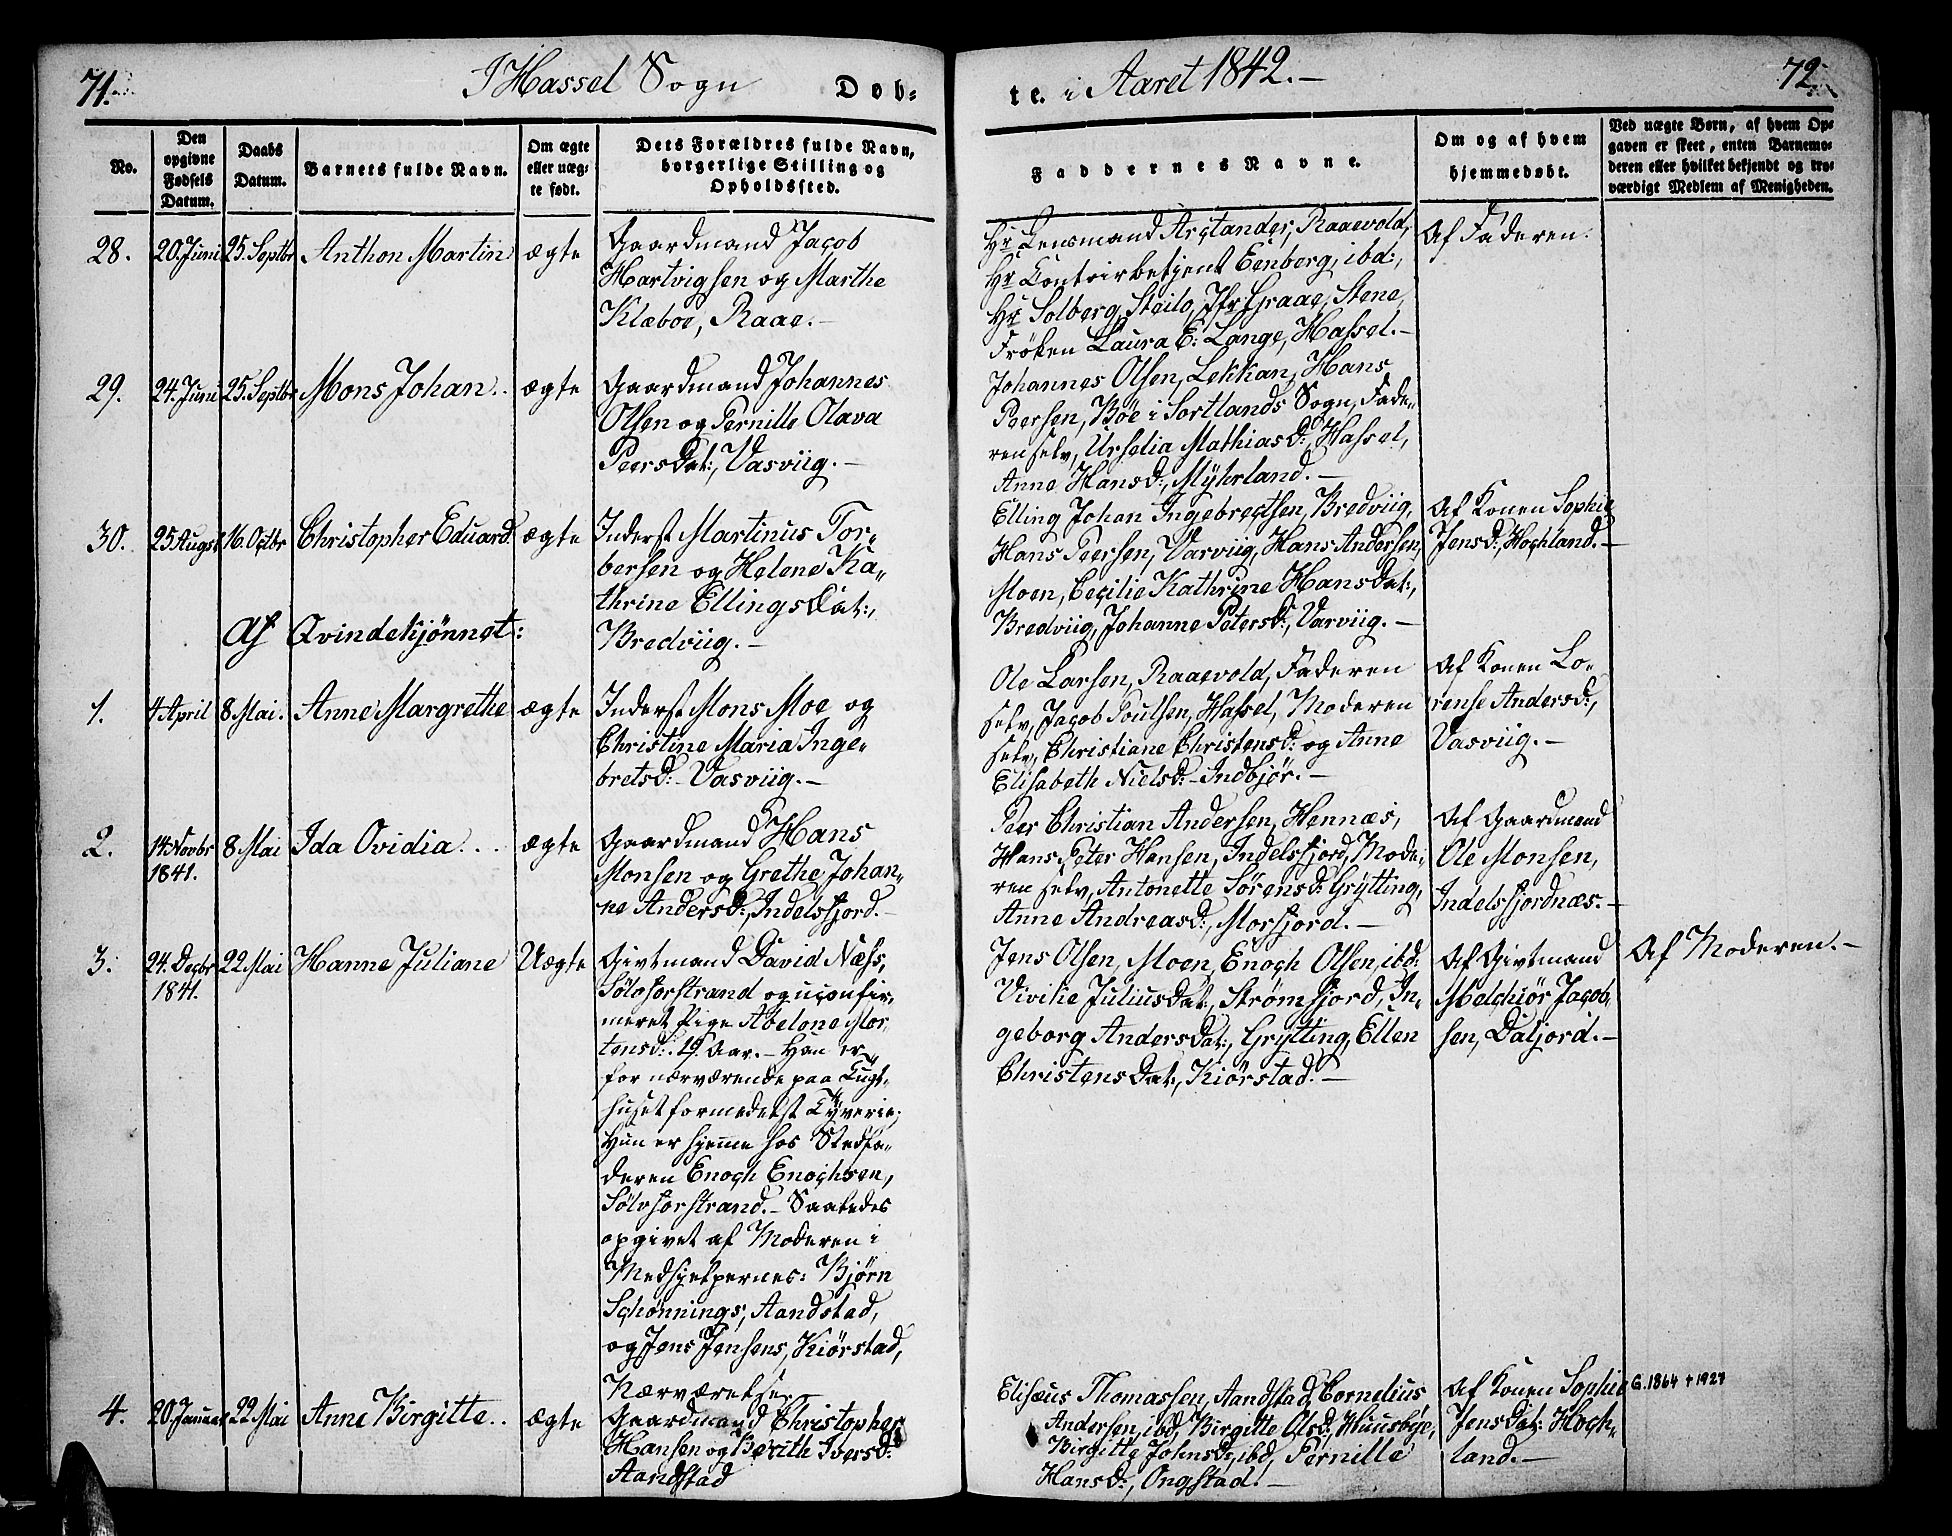 71.
I Hassel Sogn
Døb-
te. i Aaret 1842. -
72.
No.
Den
opgivne
Fødsels
Datum.
Daabs
Datum.
Barnets fulde Navn.
Om ægte
eller uæg-
te født.
Dets Forældres fulde Navn,
borgerlige Stilling og
Opholdssted.
Faddernes Navne.
Om og af hvem
hjemmedøbt.
Ved uægte Børn, af hvem Op-
gaven er skeet, enten Barnemo-
deren eller hvilket bekjendt og tro-
værdigt Medlem af Menigheden.
28.
20. Juni
25. Septbr
Anthon Martin
ægte
Gaardmand Jacob
Hartvigsen og Marthe
Klæboe, Raae. -
Hr Lensmand Arctander, Raaevold,
Hr Contoirbetjent Eenberg, ibd:,
Hr Solberg, Steilo, Jfr Graae, Stene,
Frøken Laura E: Lange, Hassel. -
Af Faderen.
29.
24. Juni
25. Septbr
Mons Johan..
ægte
Gaardmand Johannes
Olsen og Pernille Olava
PeersDat:, Vasviig. -
Johannes Olsen, Lekkan, Hans
Peersen, Böe i Sortlands Sogn, Fade-
ren selv, Urselia MathiasD:, Hassel,
Anne HansD:, Myhrland. -
30.
25 Augst
16. Octbr
Christopher Eduard
ægte
Inderst Martinus Tor-
bersen og Helene Ka-
thrine EllingsDat:,
Bredviig. -
Elling Johan Ingebrectsen, Bredviig,
Hans Peersen, Varviig, Hans Andersen,
Moen, Cecilie Kathrine HansDat:,
Bredviig, Johanne PetersD:, Varviig. -
Af Konen Sophie
JensD:, Hochland. -
Af Qvindekjønnet:
1.
4 April
8 Mai.
Anne Margrethe
ægte
Inderst Mons Moe og
Christine Maria Inge-
bretsd: - Vasviig. -
Ole Larsen, Raaevold, Faderen
selv, Jacob Poulsen, Hassel, Moderen
selv, Christiane Christensd: og Anne
Elisabeth Nielsd: - Indbjør. -
Af Konen Lo-
rense Andersd:,
Vasviig. -
2.
14 Novbr
1841.
8 Mai
Ida Ovidia...
ægte
Gaardmand Hans
Monsen og Grethe Johan-
ne AndersD:, Indelsfjord. -
Peer Christian Andersen, Hennæs,
Hans Peter Hansen, Indelsfjord, Mode-
ren selv, Antonette Sørensd: Grytting,
Anne Andreasd:, Morfjord. -
Af Gaardmand
Ole Monsen,
Indelsfjordnæs. -
3.
24. Decbr
1841.
22 Mai
Hanne Juliane
Uægte
Givtmand David Næss,
Sölosorstrand og uconfir-
meret Pige Abelone Mor-
tensd: 19 Aar. - Han er
for nærværende paa Tugt-
huset formedelst Tyverie;
Hun er hjeme hos Stedfa-
deren Enoch Enochsen,
Sölosorstrand. - Saaledes
opgivet af Moderen i
Medhjelpernes: Bjørn
Schønnings, Aandstad,
og Jens Jensens, Kiörstad,
Nærværelse.
Jens Olsen, Moen, Enoch Olsen, ibd:
Vivilie JuliusDat:, Strømfjord, In-
geborg AndersDat:, Grytting, Ellen
ChristensDat:, Kiörstad. -
Af Givtmand
Melchiör Jacob-
sen, Daljord. -
Af Moderen. -
4.
20. Januar
22 Mai
Anne Birgitte..
ægte
Gaardmand Christopher
Hansen og Berith Iversd:
Aandstad
Elisæus Thomassen, Aandstad, Cornelius
Andersen, ibd, Birgitte Olsd:, Huusbye,
Birgitte JohnsD:, ibd, Pernille
HansD:, Ongstad. -
Af Konen Sophie
JensDat: Hoch-
land. -
G. 1864 + 1927